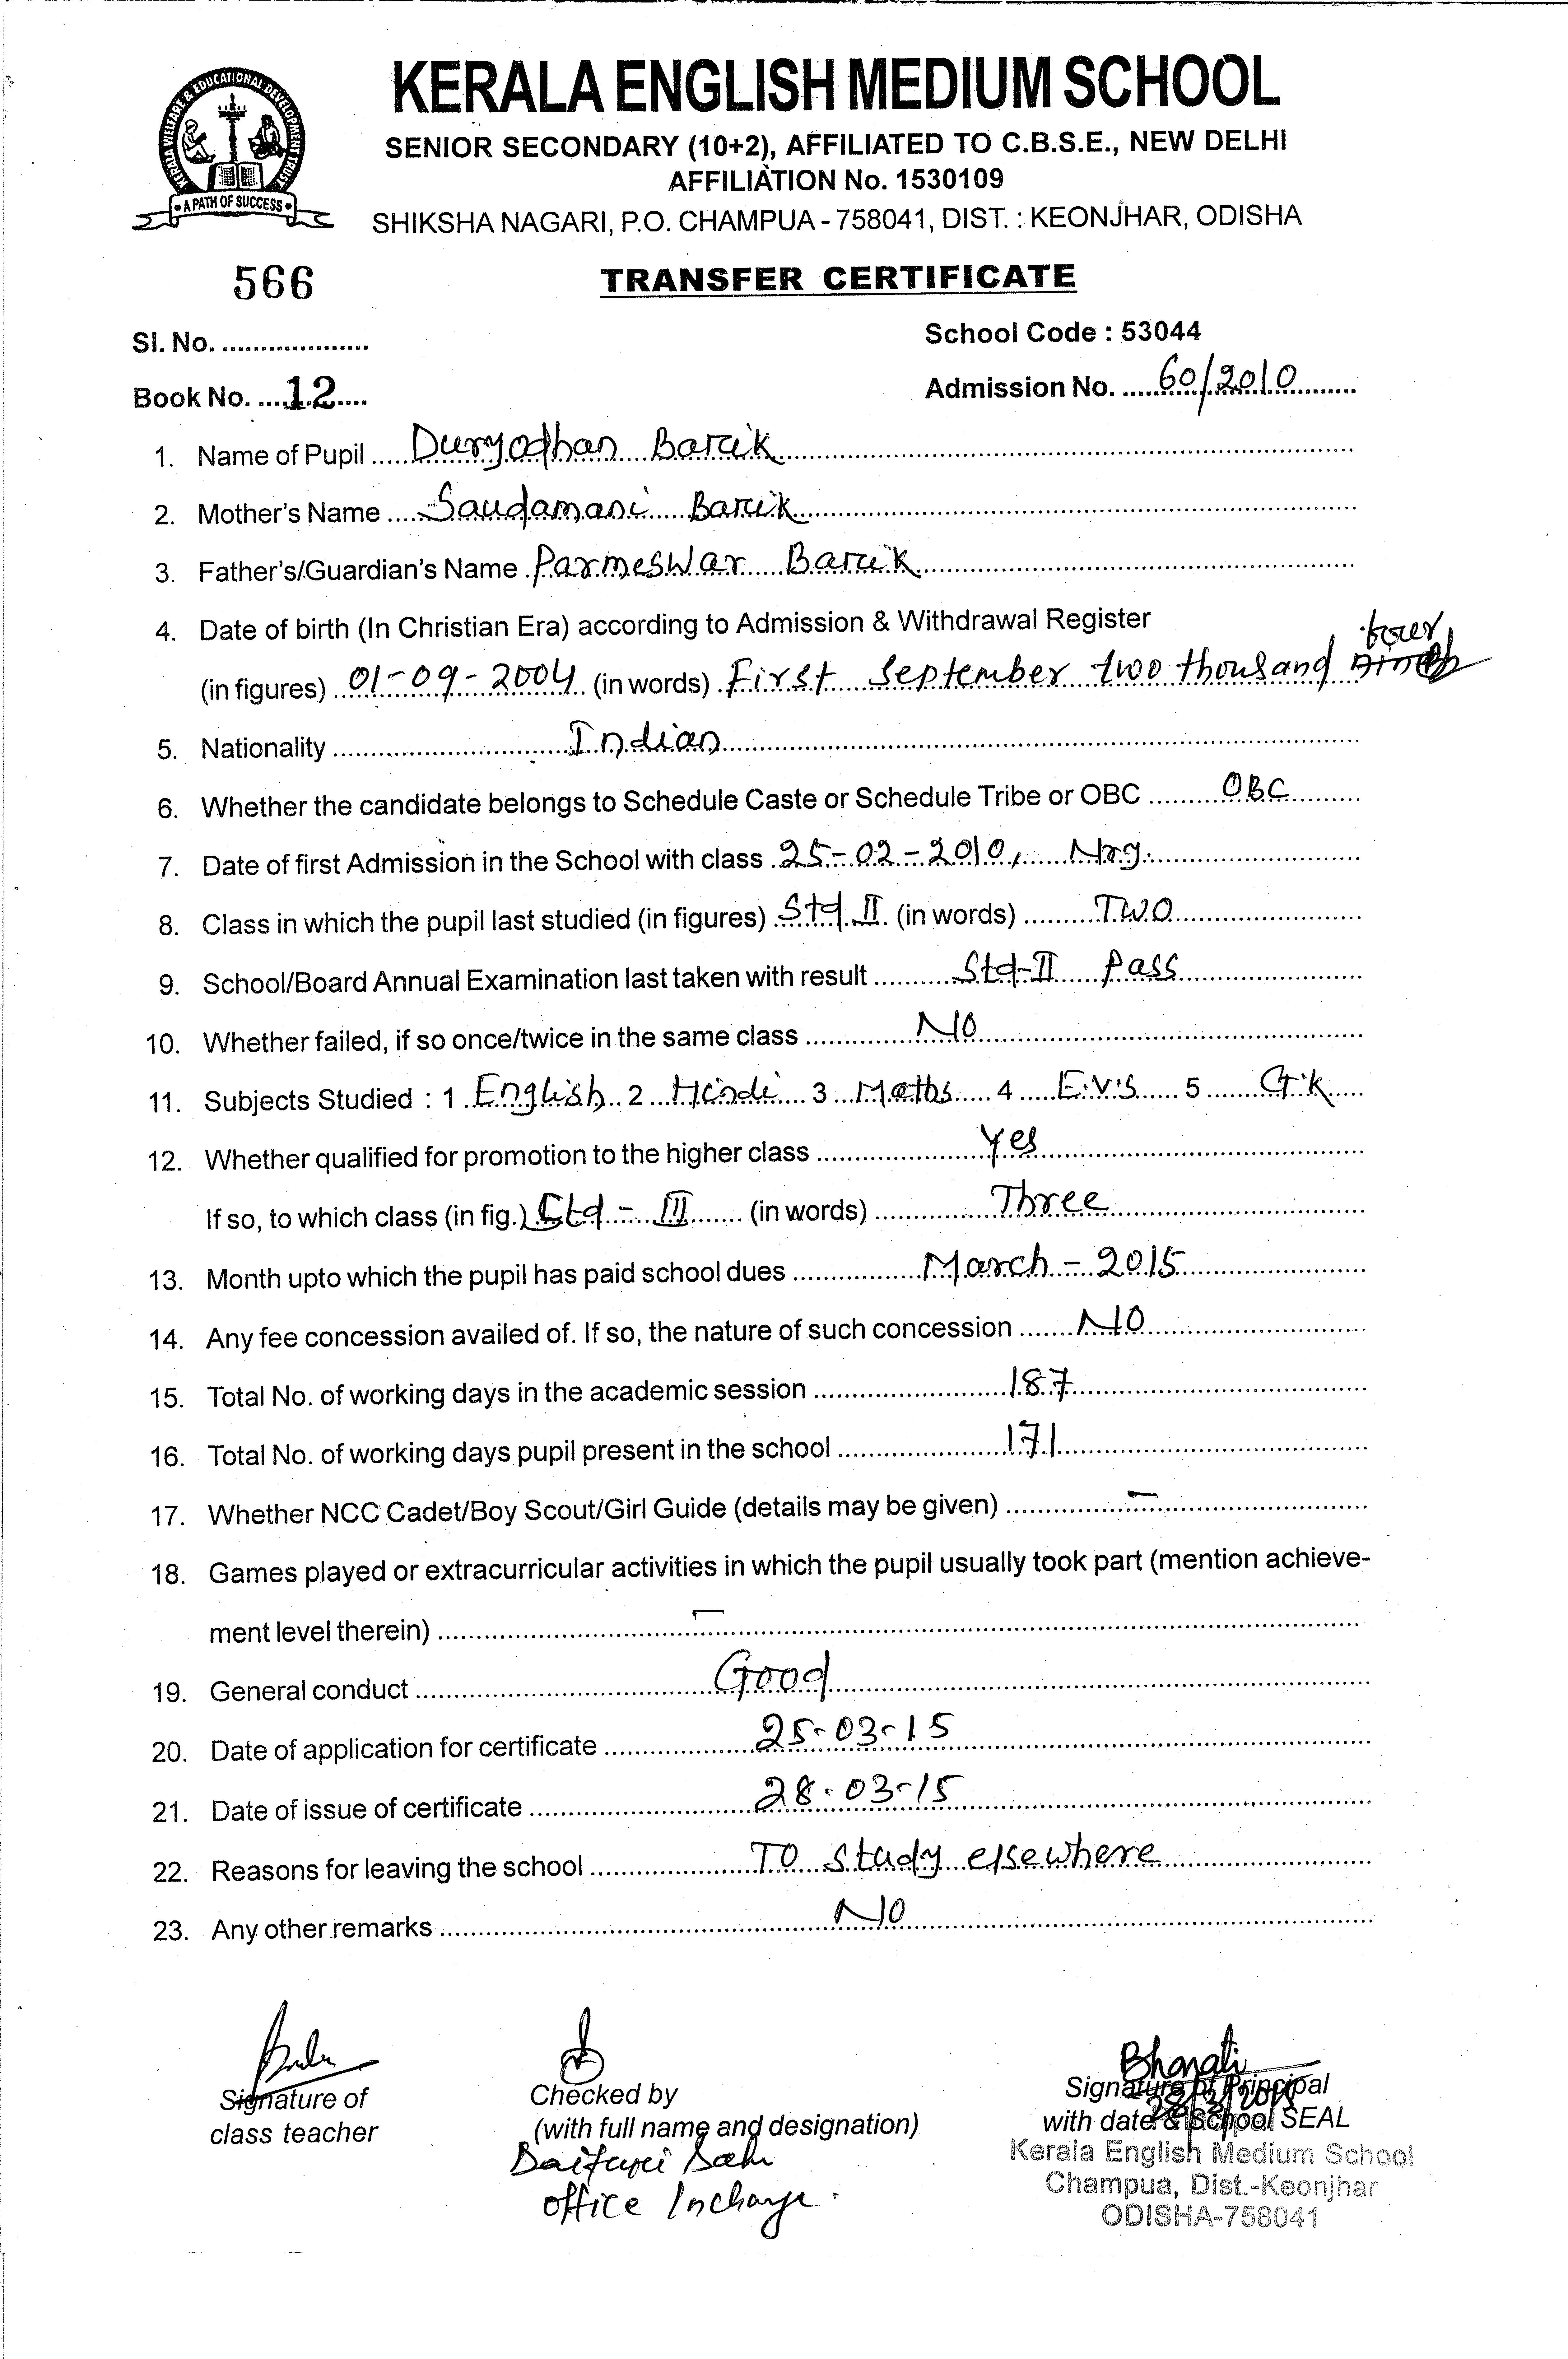 KERALA WELFARE & EDUCATIONAL DEVELOPMENT TRUST
A PATH OF SUCCESS
KERALA ENGLISH MEDIUM SCHOOL
SENIOR SECONDARY (10+2), AFFILIATED TO C.B.S.E., NEW DELHI
AFFILIATION No. 1530109
SHIKSHA NAGARI, P.O. CHAMPUA - 758041, DIST. : KEONJHAR, ODISHA
566
TRANSFER CERTIFICATE
Sl. No. ...................
School Code : 53044
Book No. ....12....
Admission No. .....60/2010.....
1. Name of Pupil ..... Duryodhan Barik
2. Mother's Name .... Saudamani Barik
3. Father's/Guardian's Name . Parmeswar Barik
4. Date of birth (In Christian Era) according to Admission & Withdrawal Register
four
(in figures) 01-09-2004 (in words) First September two thousand
5. Nationality ..... Indian
6. Whether the candidate belongs to Schedule Caste or Schedule Tribe or OBC ..... OBC
7. Date of first Admission in the School with class . 25-02-2010, Nrg.
8. Class in which the pupil last studied (in figures) Std II (in words) ..... TWO
9. School/Board Annual Examination last taken with result ..... Std-II Pass
10. Whether failed, if so once/twice in the same class ..... NO
11. Subjects Studied : 1 English 2 Hindi 3 Maths 4 E.V.S 5 G.K
12. Whether qualified for promotion to the higher class ..... Yes
If so, to which class (in fig.) Std - III (in words) ..... Three
13. Month upto which the pupil has paid school dues ..... March - 2015
14. Any fee concession availed of. If so, the nature of such concession ..... NO
15. Total No. of working days in the academic session ..... 187
16. Total No. of working days pupil present in the school ..... 171
17. Whether NCC Cadet/Boy Scout/Girl Guide (details may be given) ..... –
18. Games played or extracurricular activities in which the pupil usually took part (mention achieve-
ment level therein) ..... –
19. General conduct ..... Good
20. Date of application for certificate ..... 25-03-15
21. Date of issue of certificate ..... 28-03-15
22. Reasons for leaving the school ..... TO study elsewhere
23. Any other remarks ..... NO
Bharati
28/3/2015
Signature of
class teacher
Checked by
(with full name and designation)
Daitari Sahu
office Incharge.
Signature of Principal
with date & School SEAL
Kerala English Medium School
Champua, Dist.-Keonjhar
ODISHA-758041